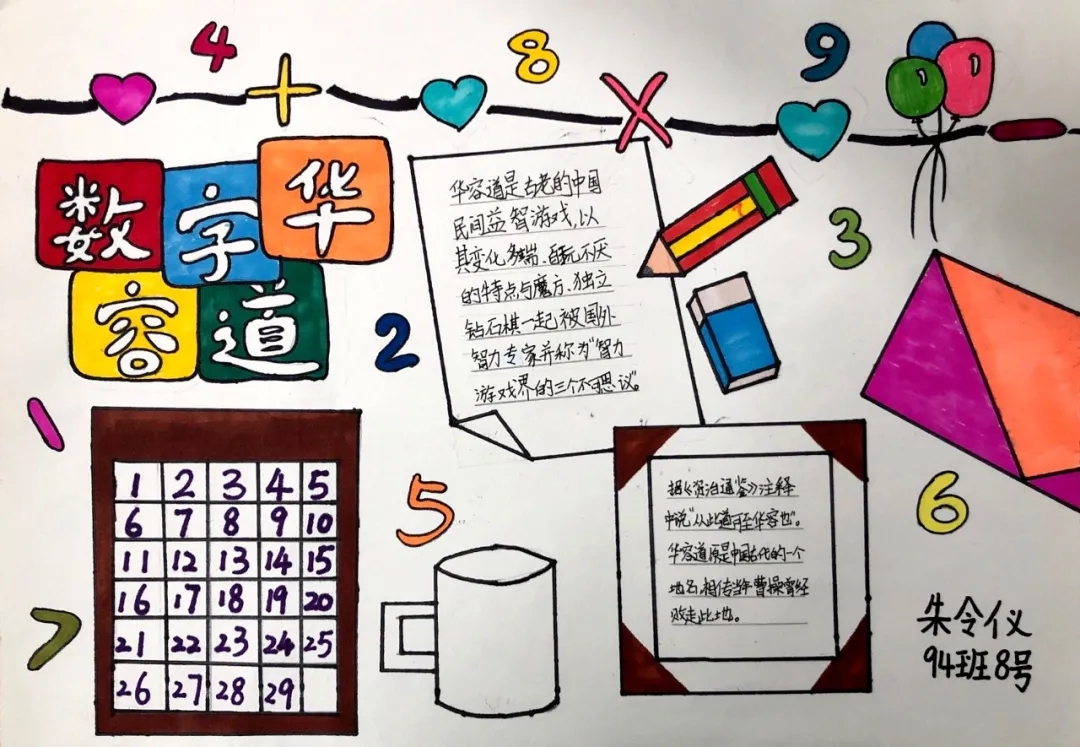 4
8
9
+
×
数字华
容道
华容道是古老的中国
民间益智游戏,以
其变化多端、百玩不厌
的特点与魔方、独立
钻石棋一起被国外
智力专家并称为"智力
游戏界的三个不可思议"。
3
2
1
1 2 3 4 5
6 7 8 9 10
11 12 13 14 15
16 17 18 19 20
21 22 23 24 25
26 27 28 29
5
据《资治通鉴》注释
中说"从此道可至华容也"。
华容道原是中国古代的一个
地名,相传当年曹操曾经
败走此地。
6
7
朱令仪
94班8号